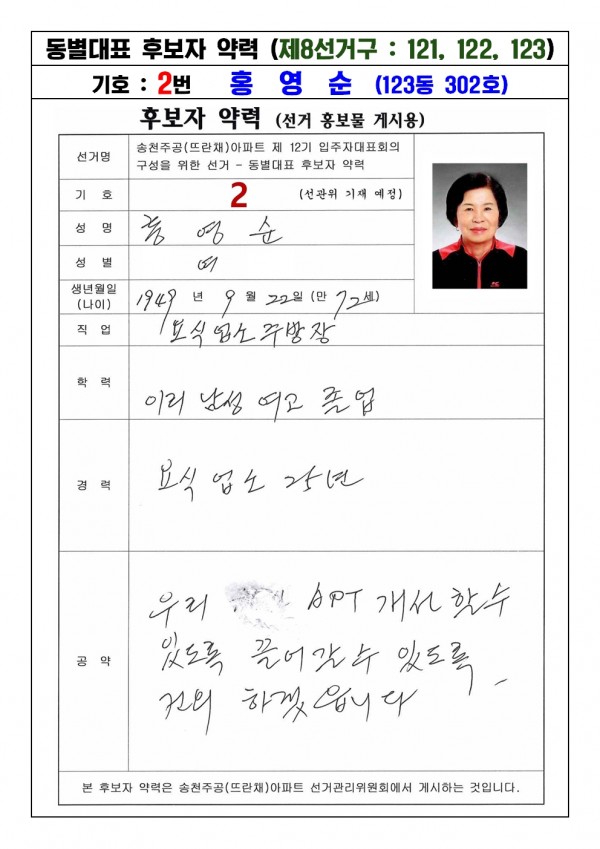 동별대표 후보자 약력 (제8선거구 : 121, 122, 123)
기호 : 2번 홍 영 순 (123동 302호)
후보자 약력 (선거 홍보물 게시용)
선거명 송천주공(뜨란채)아파트 제 12기 입주자대표회의
구성을 위한 선거 - 동별대표 후보자 약력
기 호 2 (선관위 기재 예정)
성 명 홍 영 순
성 별 여
생년월일
(나이) 1949 년 9 월 22일 (만 72세)
직 업 요식업소주방장
학 력 이리 남성 여고 졸업
경 력 요식 업소 25년
공 약 우리 APT 개선 할수
있도록 끌어갈수 있도록
건의 하겠읍니다
본 후보자 약력은 송천주공(뜨란채)아파트 선거관리위원회에서 게시하는 것입니다.